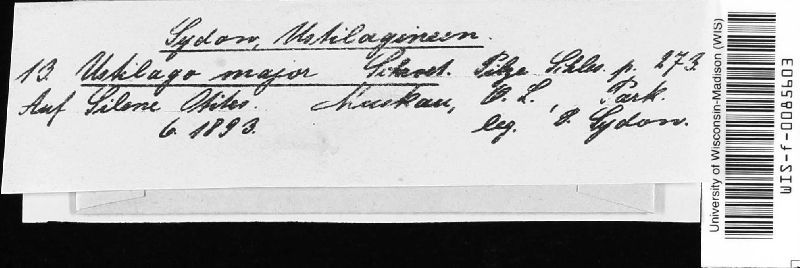 Sydow, Ustilagineen.
13. Ustilago major Schroet. Pilze Schles. p. 273.
Auf Silene Otites. Muskau, O. L., Park.
6. 1893. leg. P. Sydow.
University of Wisconsin-Madison (WIS)
WIS-f-0085603